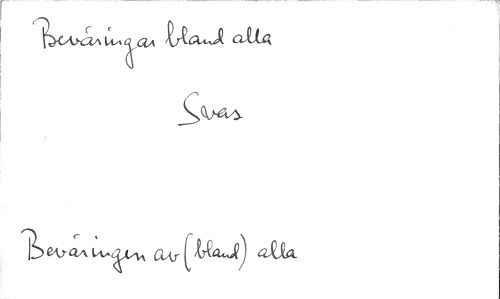 Beväringar bland alla
Svas
Beväringen av (bland) alla